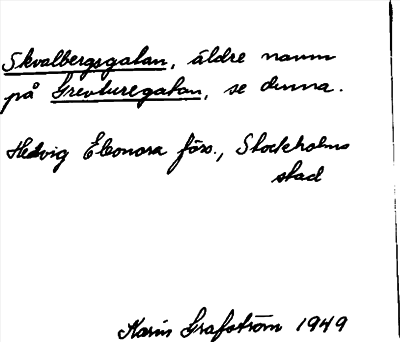 Skvalbergsgatan, äldre namn
på Grevturegatan, se denna.
Hedvig Eleonora förs., Stockholms
stad
Karin Grafström 1949